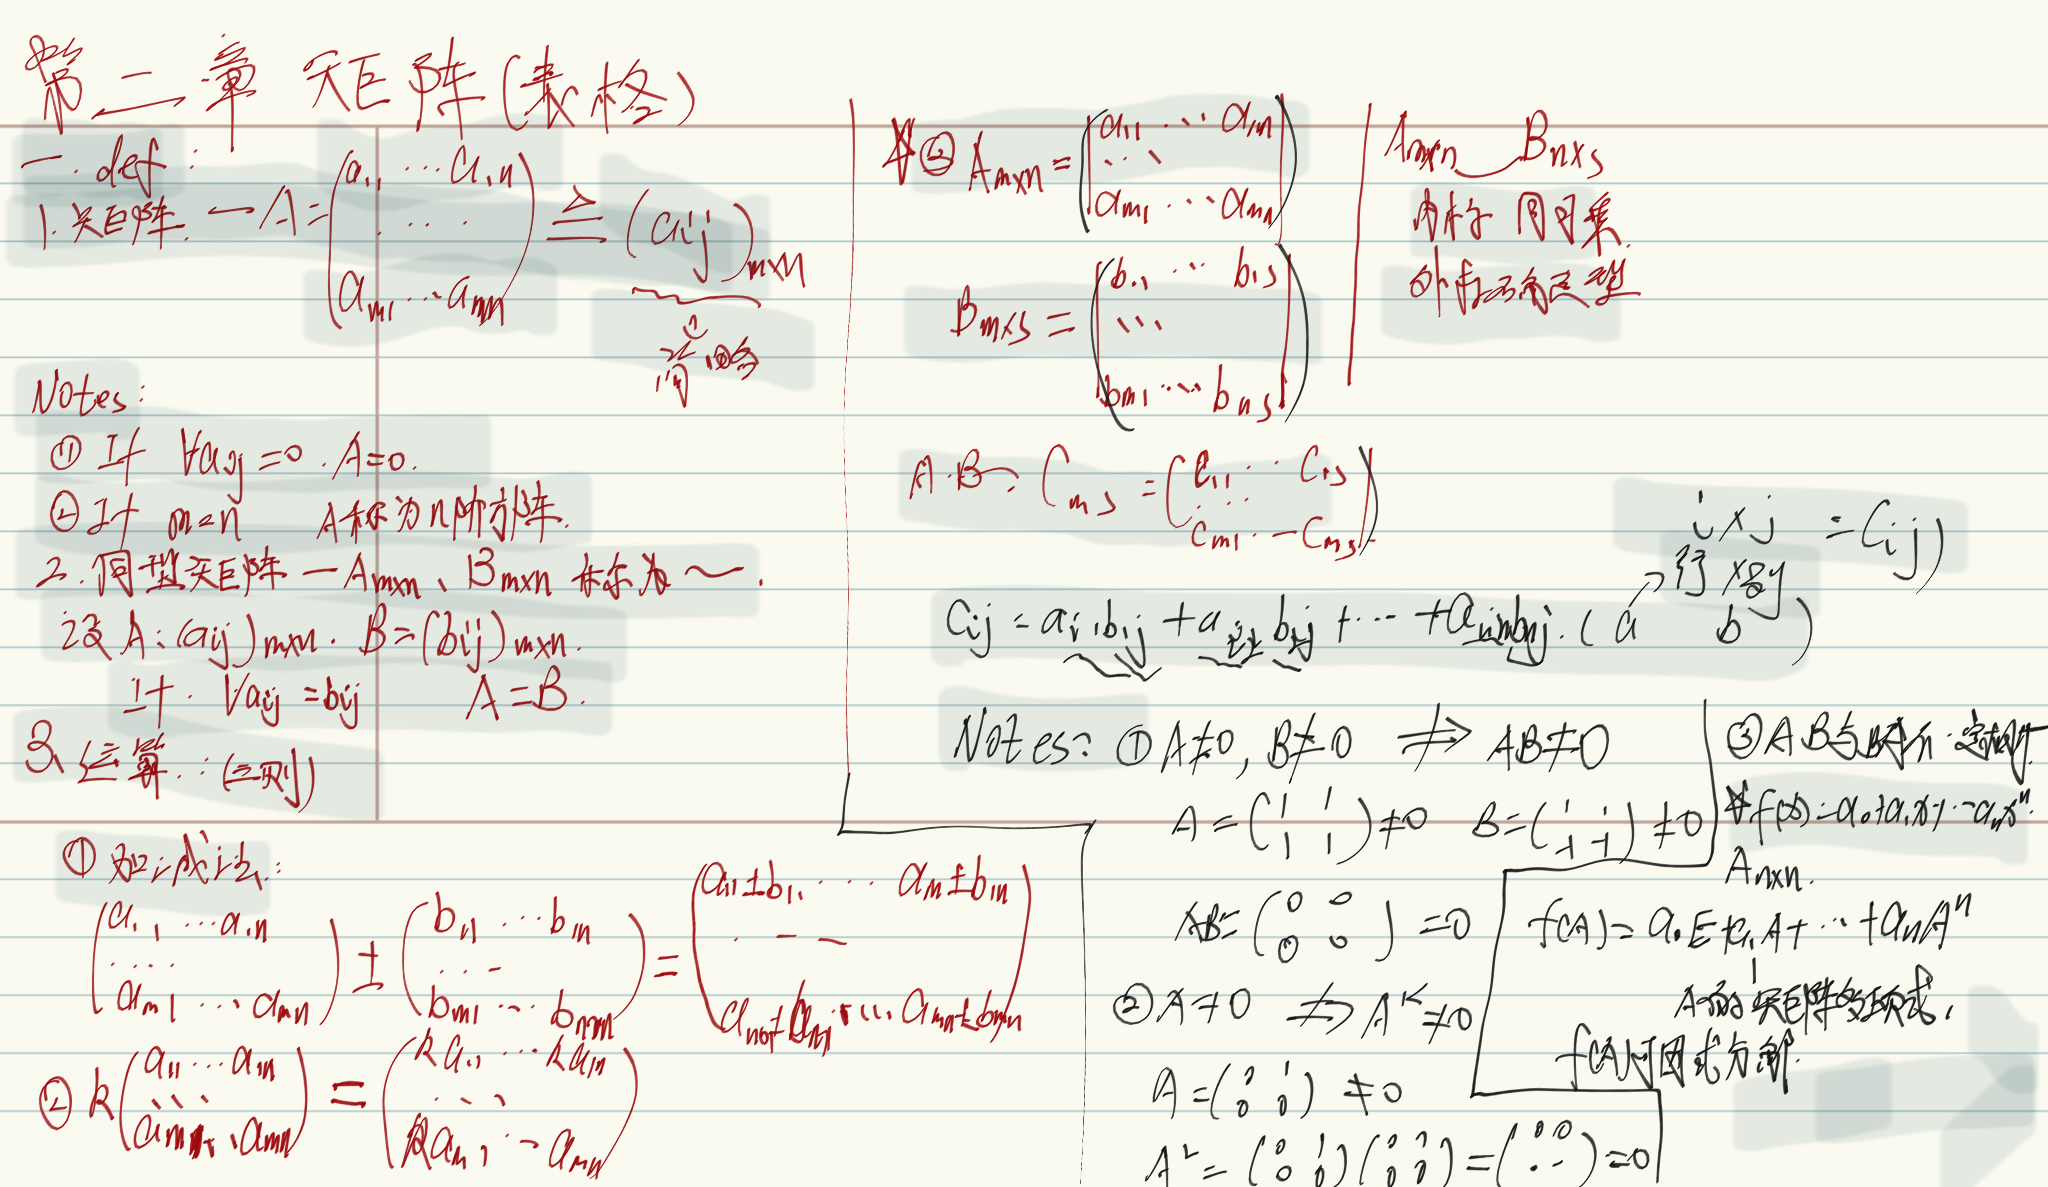 第二章 矩阵(表格)
一. def:
1. 矩阵. — A = (a₁₁ ⋯ a₁n
⋯
am₁ ⋯ amn) ≜ (aij)m×n
Notes:
① If ∀aij = 0. A = 0.
② If m = n A称为n阶方阵.
2. 同型矩阵 — Am×n、Bm×n 称为 ~.
设 A = (aij)m×n. B = (bij)m×n.
if. ∀aij = bij A = B.
3. 运算: (三则)
① 加减法:
(a₁₁ ⋯ a₁n
⋯
am₁ ⋯ amn) ± (b₁₁ ⋯ b₁n
⋯
bm₁ ⋯ bmn) = (a₁₁±b₁₁ ⋯ a₁n±b₁n
⋯
am₁±bm₁ ⋯ amn±bmn)
② k(a₁₁ ⋯ a₁n
⋯
am₁ ⋯ amn) = (ka₁₁ ⋯ ka₁n
⋯
kam₁ ⋯ amn)
③ Am×n = (a₁₁ ⋯ a₁n
⋯
am₁ ⋯ amn)
Bm×s = (b₁₁ ⋯ b₁s
⋯
bm₁ ⋯ bns)
A·B = Cms = (c₁₁ ⋯ c₁s
⋯
cm₁ ⋯ cms)
Am×n Bn×s
内标同可乘.
外标定型
i × j = Cij)
行 × 列
Cij = ai₁b₁j + ai₂b₂j + ⋯ + ainbnj. (a b)
Notes: ① A≠0, B≠0 ⇏ AB≠0
A = (1 1
1 1) ≠ 0 B = (1 1
-1 -1) ≠ 0
AB = (0 0
0 0) = 0
② A≠0 ⇏ Aᵏ≠0
A = (0 1
0 0) ≠ 0
A² = (0 1
0 0)(0 1
0 0) = (0 0
⋯) = 0
③ AB与BA不一定相等.
f(x) = a₀+a₁x+⋯anxⁿ.
An×n.
f(A) = a₀E+a₁A+⋯+anAⁿ
A的矩阵多项式.
f(A)可因式分解.